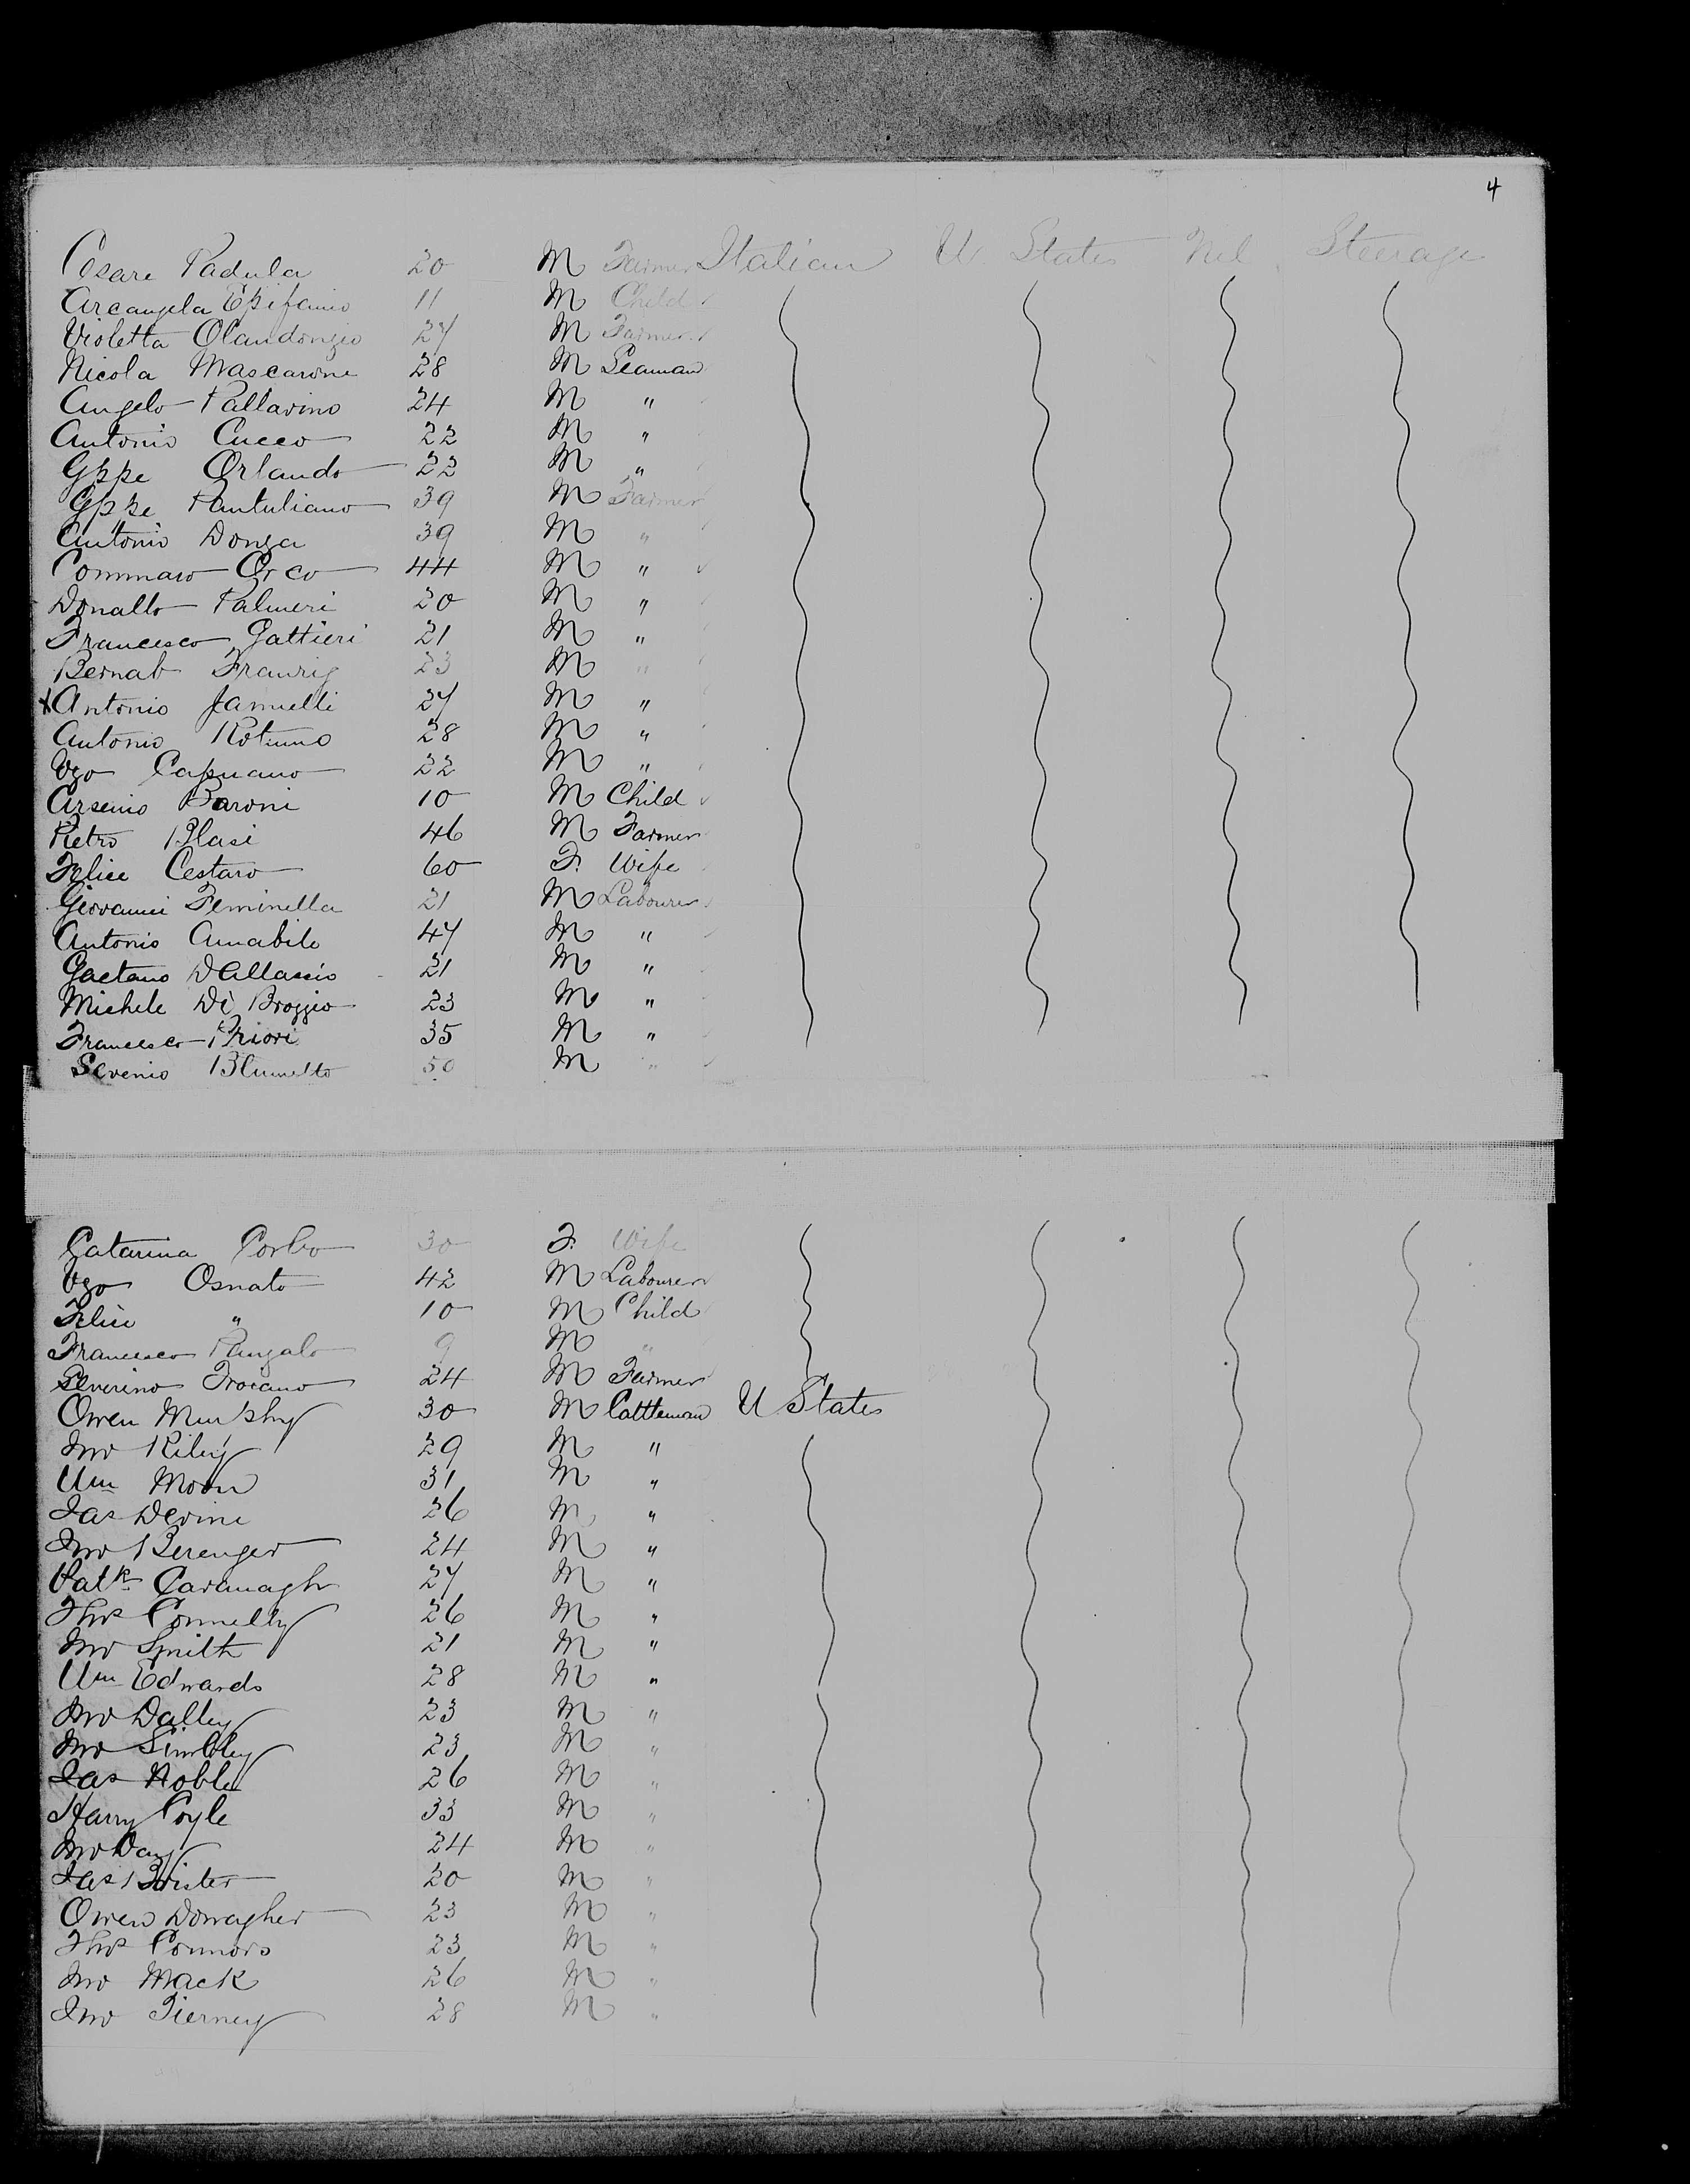 4
Cesare Padula 20 M Farmer Italian U. States Nil Steerage
Arcangela Epifanio 11 M Child
Violetta Olandongio 27 M Farmer
Nicola Mascarone 28 M Seaman
Angelo Pallavino 24 M "
Antonio Cucco 22 M "
Gppe Orlando 22 M "
Gppe Pantuliano 39 M Farmer
Antonio Donga 39 M "
Tommaso Orco 44 M "
Donallo Palmeri 20 M "
Francesco Gattieri 21 M "
Bernab 23 M "
x Antonio Jannelli 27 M "
Antonio Rotunno 28 M "
Vzo Capuano 22 M "
Arsenio Baroni 10 M Child
Pietro Blasi 46 M Farmer
Felice Cestaro 60 F. Wife
Giovanni Feminella 21 M Labourer
Antonio Amabile 47 M "
Gaetano DAllassio 21 M "
Michele Di Broggio 23 M "
Francesco Priori 35 M "
Severio 50 M "
Catarina Corbo 30 F. Wife
Vzo Osnato 42 M Labourer
Felice " 10 M Child
Francesco Pangalo 9 M "
Severino Troiano 24 M Farmer
Owen Murphy 30 M Cattleman U States
Jno Riley 29 M "
Wm Moon 31 M "
Jas Devine 26 M "
Jno Berenger 24 M "
Patk Cavanagh 27 M "
Thos Connelly 26 M "
Jno Smith 21 M "
Wm Edwards 28 M "
Jno Dalley 23 M "
Jno 23 M "
Jas Noble 26 M "
Harry Coyle 33 M "
Jno Day 24 M "
Jas Brister 20 M "
Owen Donagher 23 M "
Thos Connors 23 M "
Jno Mack 26 M "
Jno Tierney 28 M "